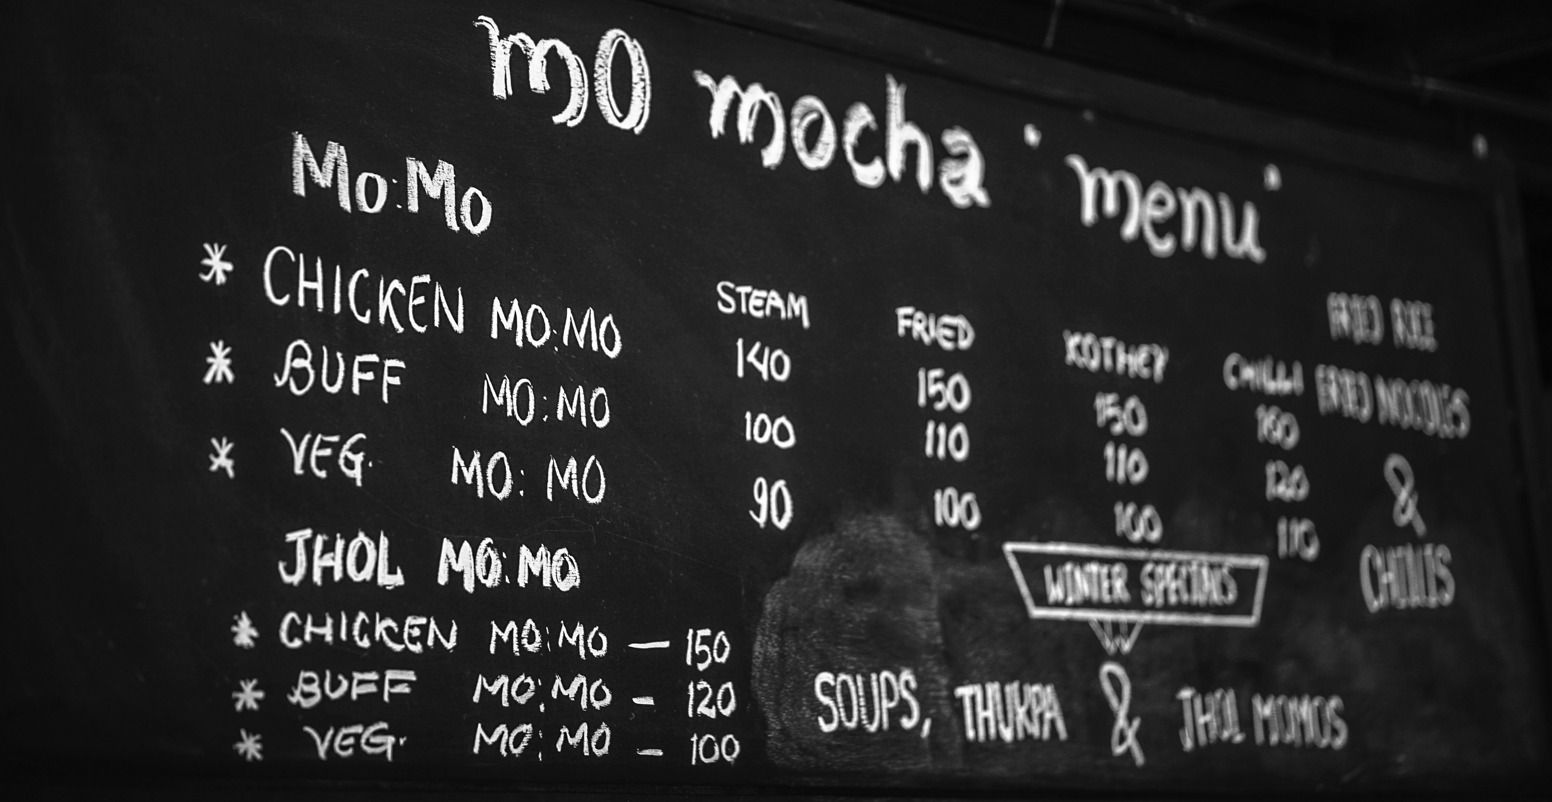 mo mocha "menu"
Mo:Mo
STEAM FRIED KOTHEY CHILLI
* CHICKEN MO:MO 140 150 150 160
* BUFF MO:MO 100 110 110 120
* VEG. MO:MO 90 100 100 110
JHOL MO:MO
* CHICKEN MO:MO — 150
* BUFF MO:MO - 120
* VEG. MO:MO - 100
FRIED RICE
FRIED NOODLES
&
CHILLIS
WINTER SPECIALS
SOUPS, THUKPA & JHOL MOMOS